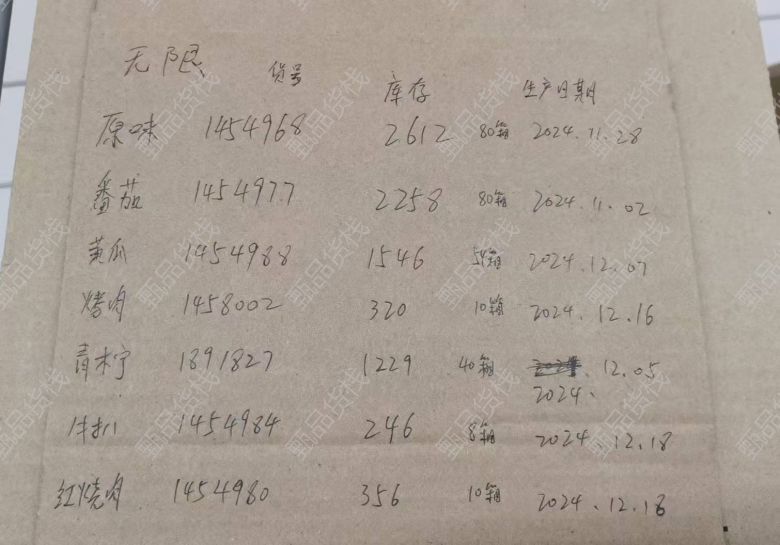 无限 货号 库存 生产日期
原味 1454968 2612 80箱 2024.11.28
番茄 1454977 2258 80箱 2024.11.02
黄瓜 1454988 1546 54箱 2024.12.07
烤肉 1458002 320 10箱 2024.12.16
青柠 1891827 1229 40箱 12.05
2024.
牛扒 1454984 246 8箱 2024.12.18
红烧肉 1454980 356 10箱 2024.12.18
甄品货栈